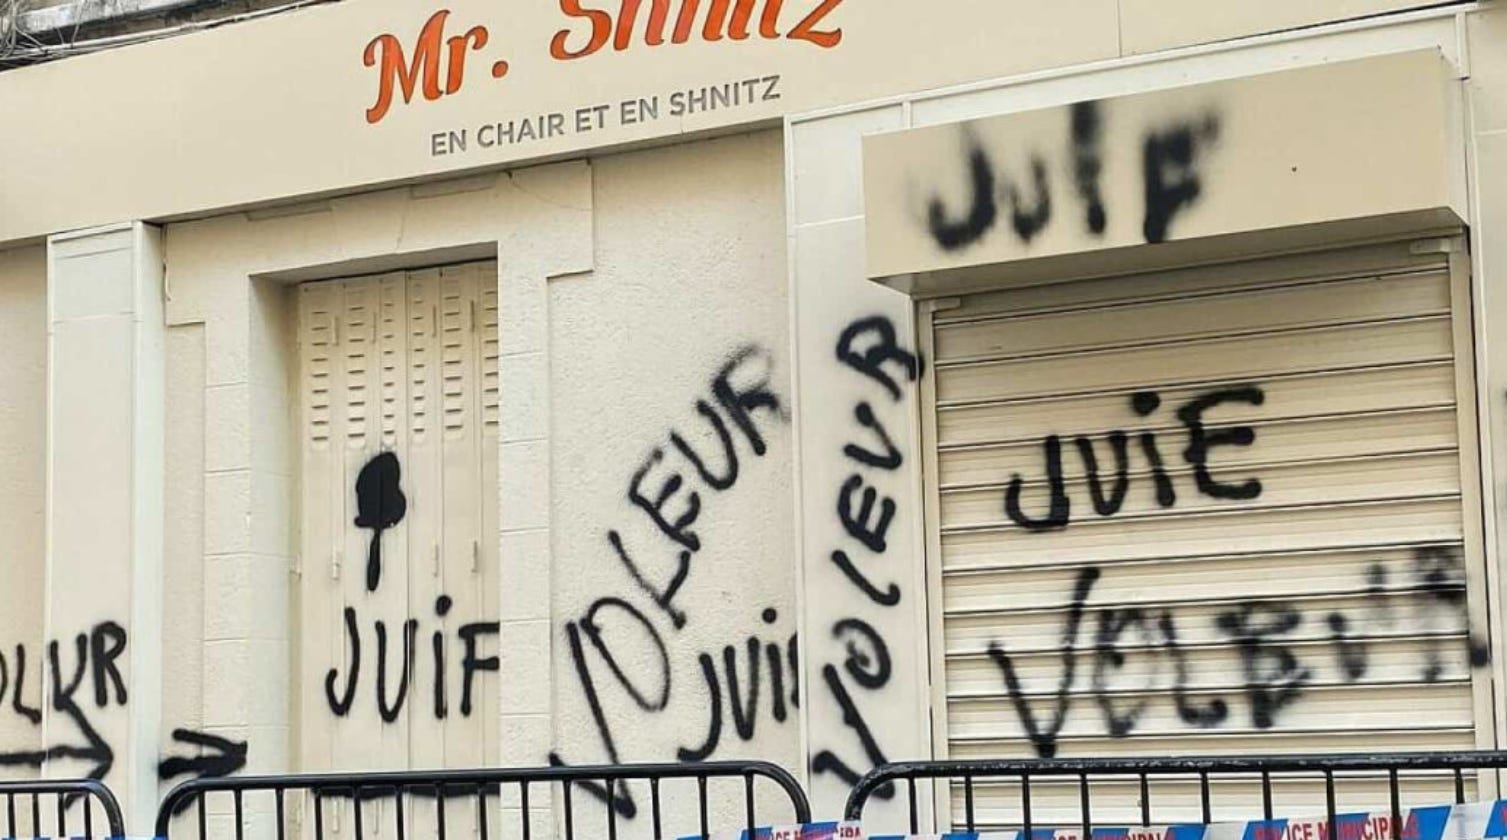 Mr. Shnitz
EN CHAIR ET EN SHNITZ
JUIF
VOLEUR
JUIF
VOLEUR
JUIF
JUIE
VOLEUR
POLICE MUNICIPALE